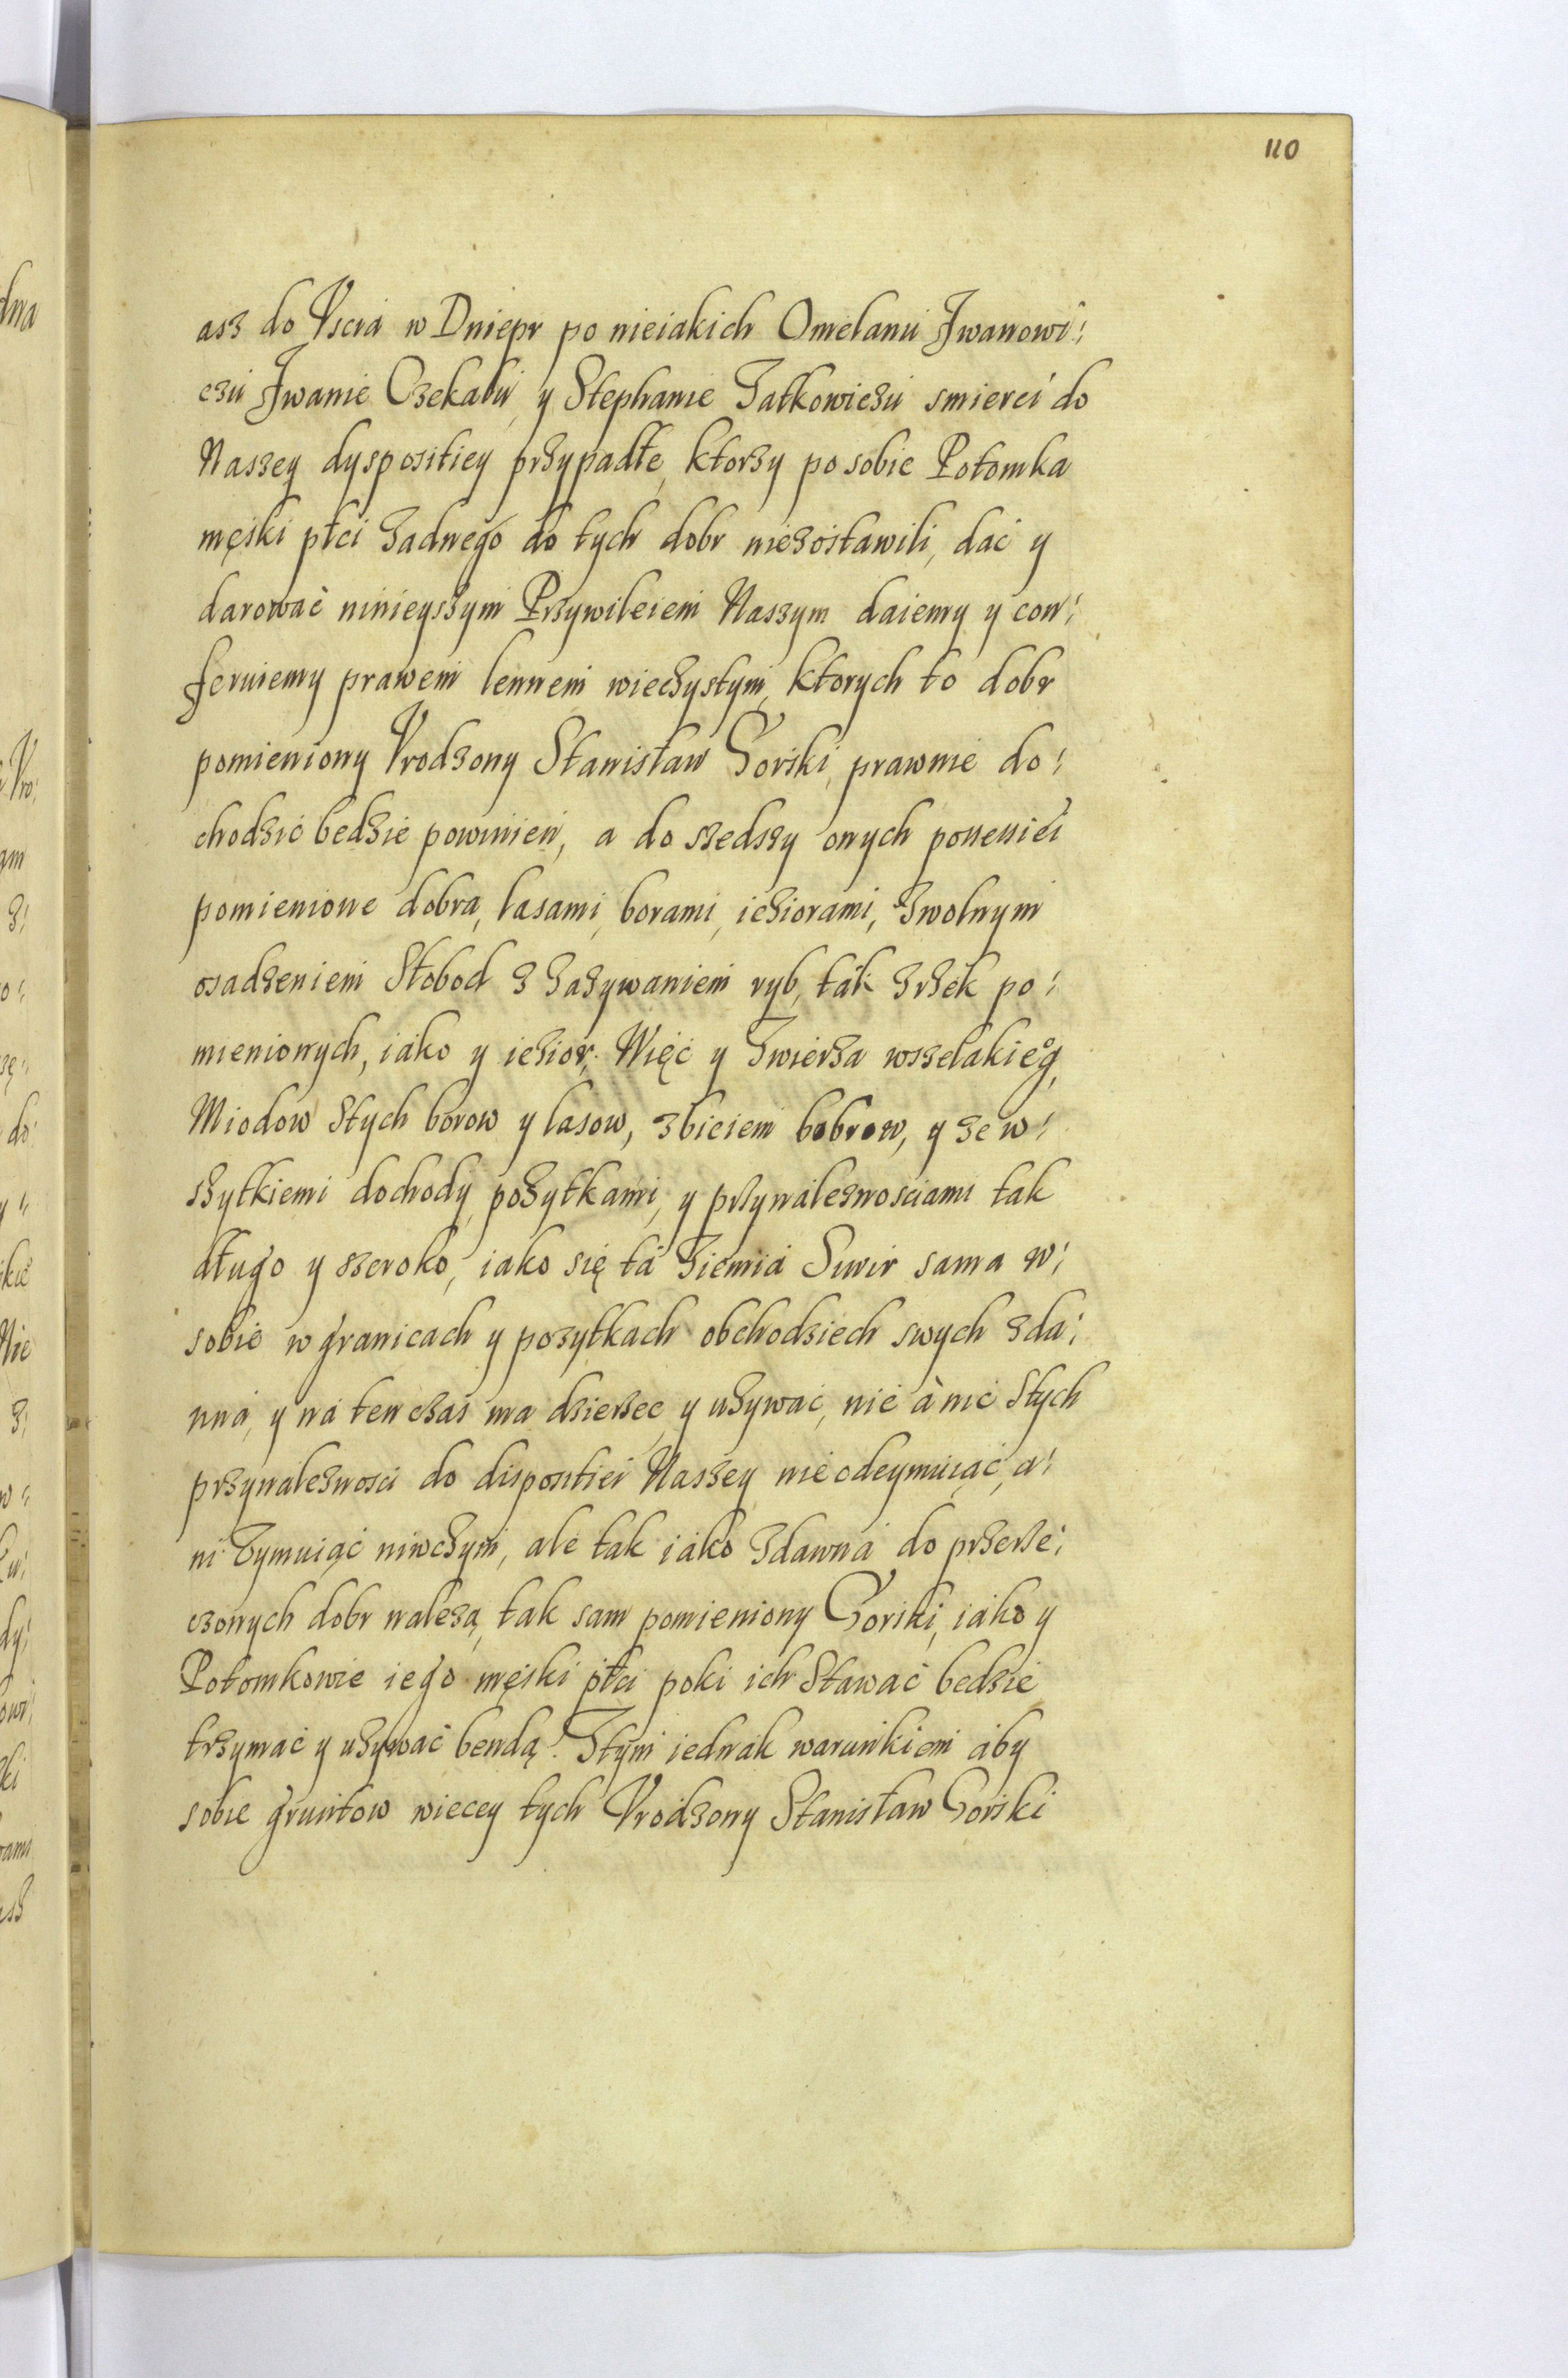 110
asz do Vscia w Dniepr po nieiakich Omelanu Jwanowi:
czu Jwanie Czekału, y Stephanie Jatkowiczu smierci do
Naszey dyspositiey przypadłe, ktorzy po sobie Potomka
męski płci żadnego do tych dobr niezostawili, dać y
darować ninieyszym Przywileiem Naszym daiemy y con:
feruiemy prawem lennem wieczystym, ktorych to dobr
pomieniony Vrodzony Stanisław Gorski, prawnie do:
chodzić bedzie powinien, a do szedszy onych
pomienione dobra, lasami, borami, ieziorami, zwolnym
osadzeniem Słobod z zażywaniem ryb, ták z rzek po:
mienionych, iáko y iezior, Więc y zwierza wszelakieg,
Miodow ztych borow y lasow, z bieiem bobrow, y ze w:
szytkiemi dochody, pożytkami, y przynáleznosciami tak
długo y szeroko, iako się tá ziemiá Suvir sama w:
sobie w granicach y pozytkach obchodziech swych zda:
nná, y ná ten czas ma dzierzec, y używać, nic à nic ztych
przynaleznosci do dispositiei Naszey nieodeymuiąc, a:
ni zymuiąc niwczym, ale tak iáko zdawná do przerze:
czonych dobr nalezą, tak sam pomieniony Gorski, iáko y
Potomkowie iego męski płci poki ich stawać bedzie
trzymać y używać bendą. Ztym iednák warunkiem áby
sobie gruntow wiecey tych Vrodzony Stanisław Gorski